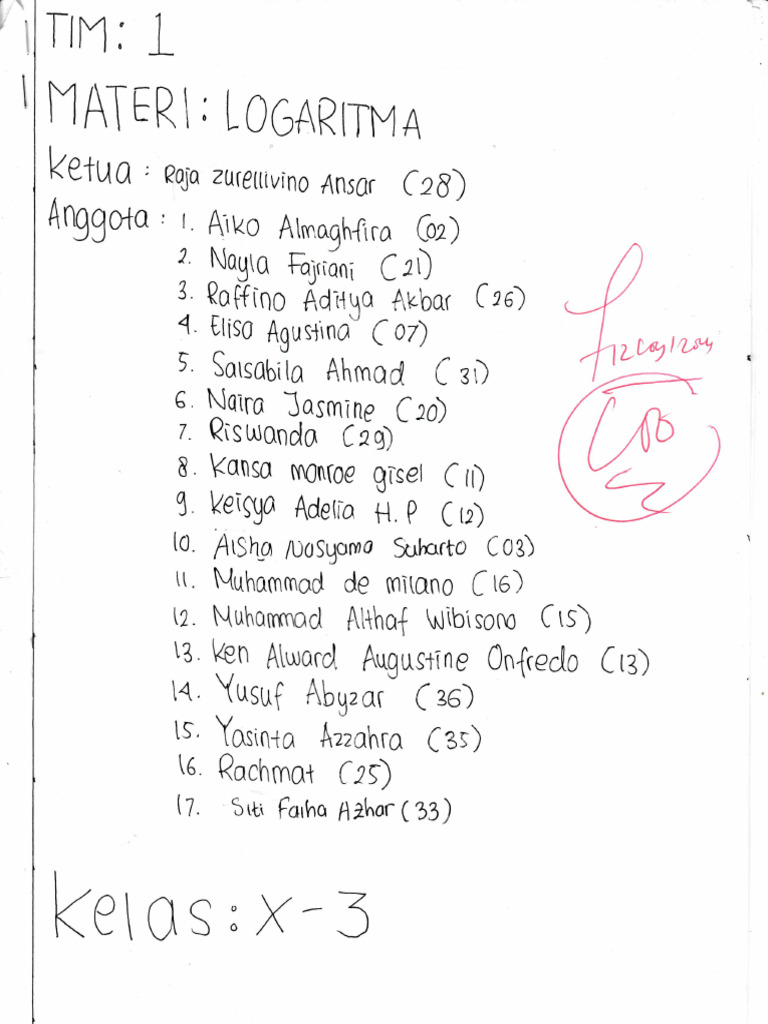 TIM: 1
MATERI: LOGARITMA
Ketua: Raja Zurellivino Ansar (28)
Anggota: 1. Aiko Almaghfira (02)
2. Nayla Fajriani (21)
3. Raffino Aditya Akbar (26)
4. Elisa Agustina (07)
5. Salsabila Ahmad (31)
6. Naira Jasmine (20)
7. Riswanda (29)
8. Kansa monroe gisel (11)
9. Keisya Adelia H.P (12)
10. Aisha Nasyama Suharto (03)
11. Muhammad de milano (16)
12. Muhammad Althaf Wibisono (15)
13. Ken Alward Augustine Onfredo (13)
14. Yusuf Abyzar (36)
15. Yasinta Azzahra (35)
16. Rachmat (25)
17. Siti Faiha Azhar (33)
Kelas: X-3